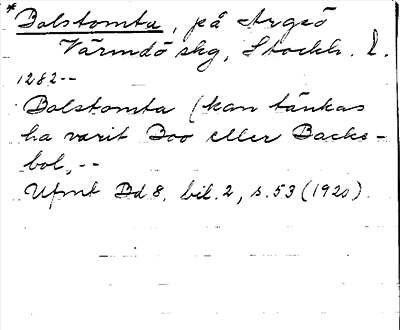 *Bolstomta, på Argeö
Värmdö skg, Stockh. l.
1282--
Bolstomta (kan tänkas
ha varit Boo eller Backe-
bol,--
Ufmt Bd 8, bil. 2, s. 53 (1920).